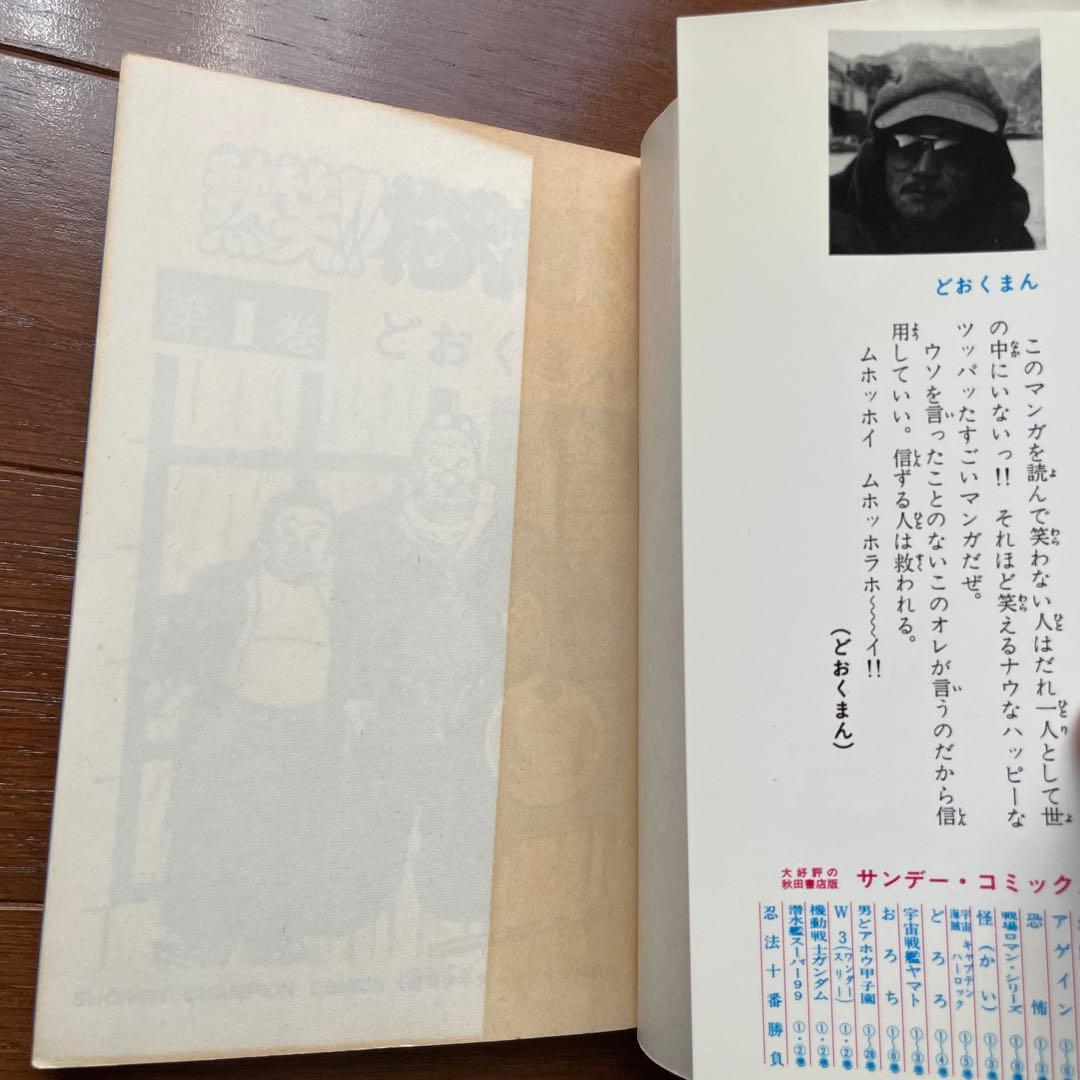 どおくまん
このマンガを読んで笑わない人はだれ一人として世
の中にいないっ!! それほど笑えるナウなハッピーな
ツッパッたすごいマンガだぜ。
ウソを言ったことのないこのオレが言うのだから信
用していい。信ずる人は救われる。
ムホッホイ ムホッホラホ〜〜〜イ!!
(どおくまん)
大好評の
秋田書店版
サンデー・コミック
アゲイン
恐怖
戦場ロマン・シリーズ
怪(かい)
宇宙海賊 キャプテンハーロック ①〜⑤巻
どろろ ①〜④巻
宇宙戦艦ヤマト ①〜③巻
おろち ①〜⑥巻
男どアホウ甲子園 ①〜㉘巻
W3(ワンダースリー) ①・②巻
機動戦士ガンダム ①・②巻
潜水艦スーパー99 ①・②巻
忍法十番勝負
第1巻
どおく